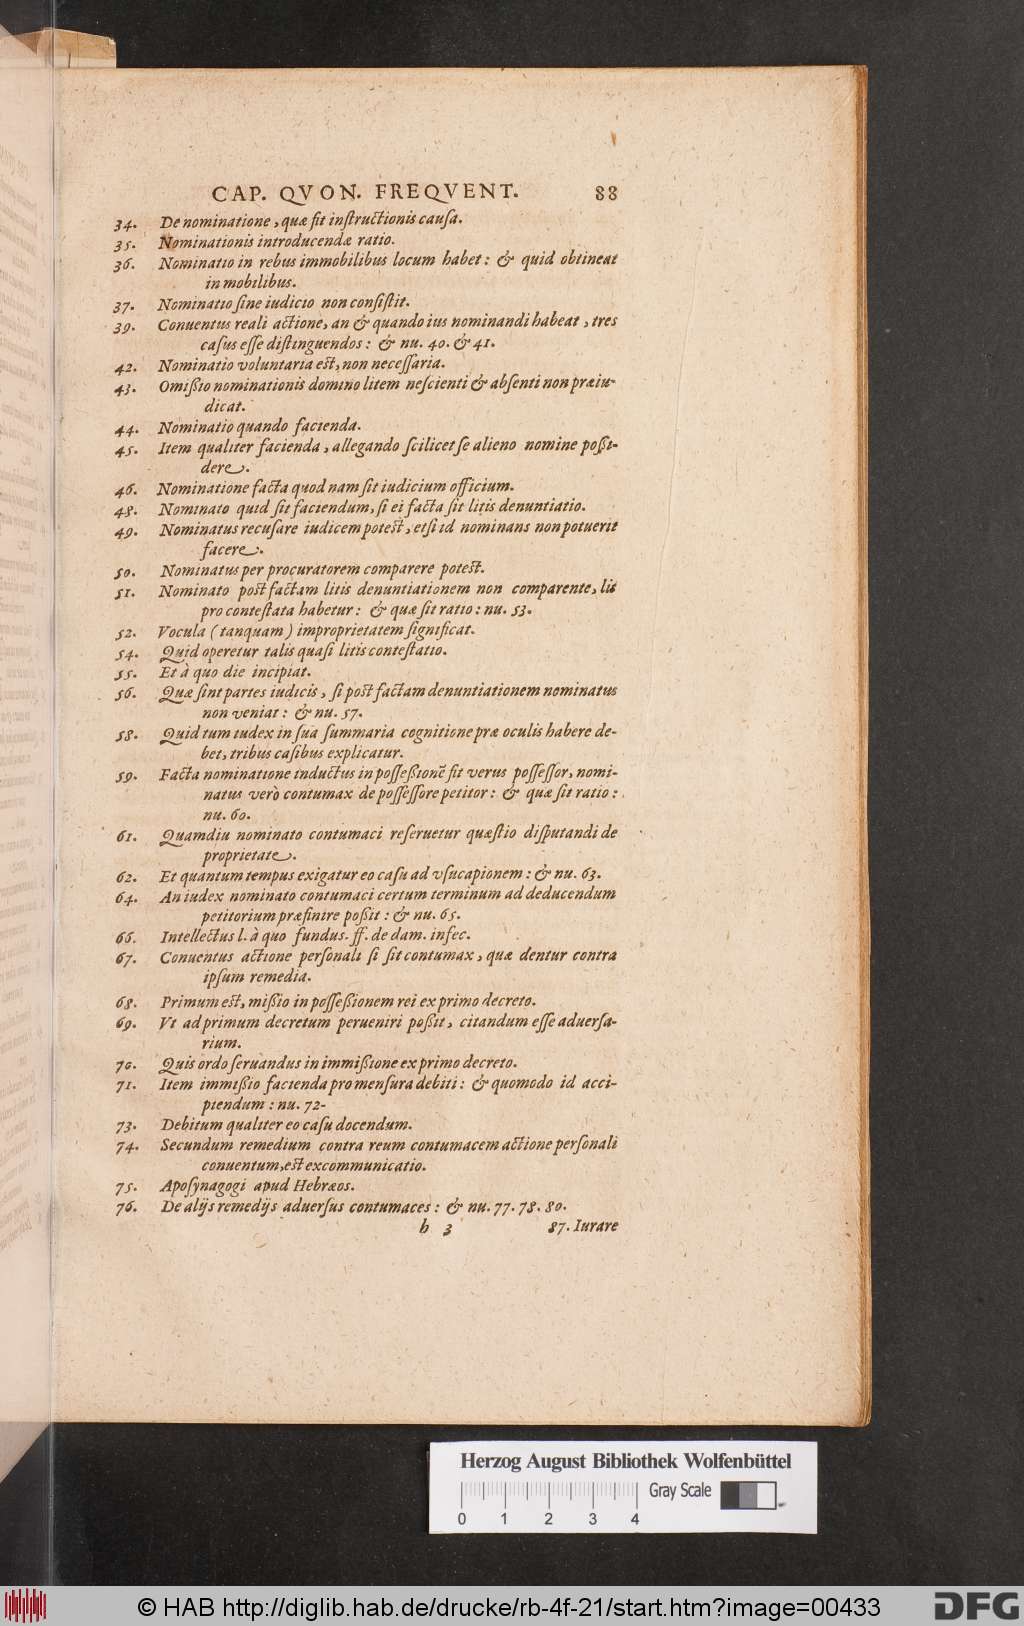 CAP. QVON. FREQVENT. 88
34. De nominatione, quæ sit instructionis causa.
35. Nominationis introducendæ ratio.
36. Nominatio in rebus immobilibus locum habet: & quid obtineat
in mobilibus.
37. Nominatio sine iudicio non consistit.
39. Conuentus reali actione, an & quando ius nominandi habeat, tres
casus esse distinguendos: & nu. 40. & 41.
42. Nominatio voluntaria est, non necessaria.
43. Omißio nominationis domino litem nescienti & absenti non præiu-
dicat.
44. Nominatio quando facienda.
45. Item qualiter facienda, allegando scilicet se alieno nomine poßi-
dere.
46. Nominatione facta quod nam sit iudicium officium.
48. Nominato quid sit faciendum, si ei facta sit litis denuntiatio.
49. Nominatus recusare iudicem potest, etsi id nominans non potuerit
facere.
50. Nominatus per procuratorem comparere potest.
51. Nominato post factam litis denuntiationem non comparente, lis
pro contestata habetur: & quæ sit ratio: nu. 53.
52. Vocula (tanquam) improprietatem significat.
54. Quid operetur talis quasi litis contestatio.
55. Et à quo die incipiat.
56. Quæ sint partes iudicis, si post factam denuntiationem nominatus
non veniat: & nu. 57.
58. Quid tum iudex in sua summaria cognitione præ oculis habere de-
bet, tribus casibus explicatur.
59. Facta nominatione inductus in posseßionē fit verus possessor, nomi-
natus verò contumax de possessore petitor: & quæ sit ratio:
nu. 60.
61. Quamdiu nominato contumaci reseruetur quæstio disputandi de
proprietate.
62. Et quantum tempus exigatur eo casu ad vsucapionem: & nu. 63.
64. An iudex nominato contumaci certum terminum ad deducendum
petitorium præfinire poßit: & nu. 65.
66. Intellectus l. à quo fundus. ff. de dam. infec.
67. Conuentus actione personali si sit contumax, quæ dentur contra
ipsum remedia.
68. Primum est, mißio in posseßionem rei ex primo decreto.
69. Vt ad primum decretum perueniri poßit, citandum esse aduersa-
rium.
70. Quis ordo seruandus in immißione ex primo decreto.
71. Item immißio facienda pro mensura debiti: & quomodo id acci-
piendum: nu. 72.
73. Debitum qualiter eo casu docendum.
74. Secundum remedium contra reum contumacem actione personali
conuentum, est excommunicatio.
75. Aposynagogi apud Hebræos.
76. De alijs remedijs aduersus contumaces: & nu. 77. 78. 80.
h 3 87. Iurare
Herzog August Bibliothek Wolfenbüttel
Gray Scale
0 1 2 3 4
© HAB http://diglib.hab.de/drucke/rb-4f-21/start.htm?image=00433
DFG